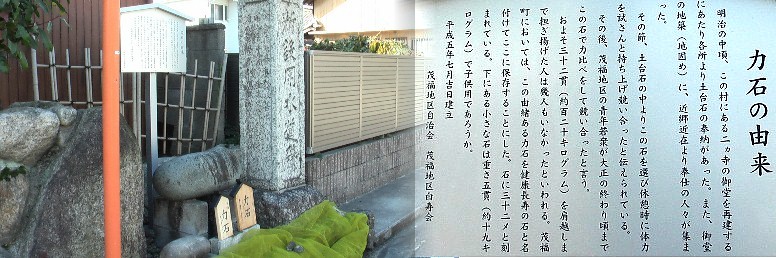 力石の由来
明治の中頃、この村にある二ヵ寺の御堂を再建する
にあたり各所より土台石の奉納があった。また、御堂
の地築(地固め)に、近郷近在より奉仕の人々が集ま
った。
その節、土台石の中よりこの石を選び休憩時に体力
を試さんと持ち上げ競い合ったと伝えられている。
その後、茂福地区の青年若衆が大正の終わり頃まで
この石で力比べをして競い合ったと言う。
およそ三十二貫(約百二十キログラム)を肩越しま
で担ぎ揚げた人は幾人もいなかったといわれる。茂福
町においては、この由緒ある力石を健康長寿の石と名
付けてここに保存することにした。石に三十二メと刻
まれている。下にある小さな石は重さ五貫(約十九キ
ログラム)で子供用であろうか。
平成五年七月吉日建立
茂福地区自治会 茂福地区白寿会
力石
力石